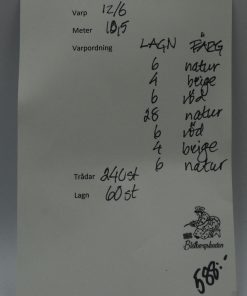 Varp 12/6
Meter 10,5
Varpordning LAGN FÄRG
6 natur
4 beige
6 röd
28 natur
6 röd
4 beige
6 natur
Trådar 240st
Lagn 60st
Bildbergsboden
588:-